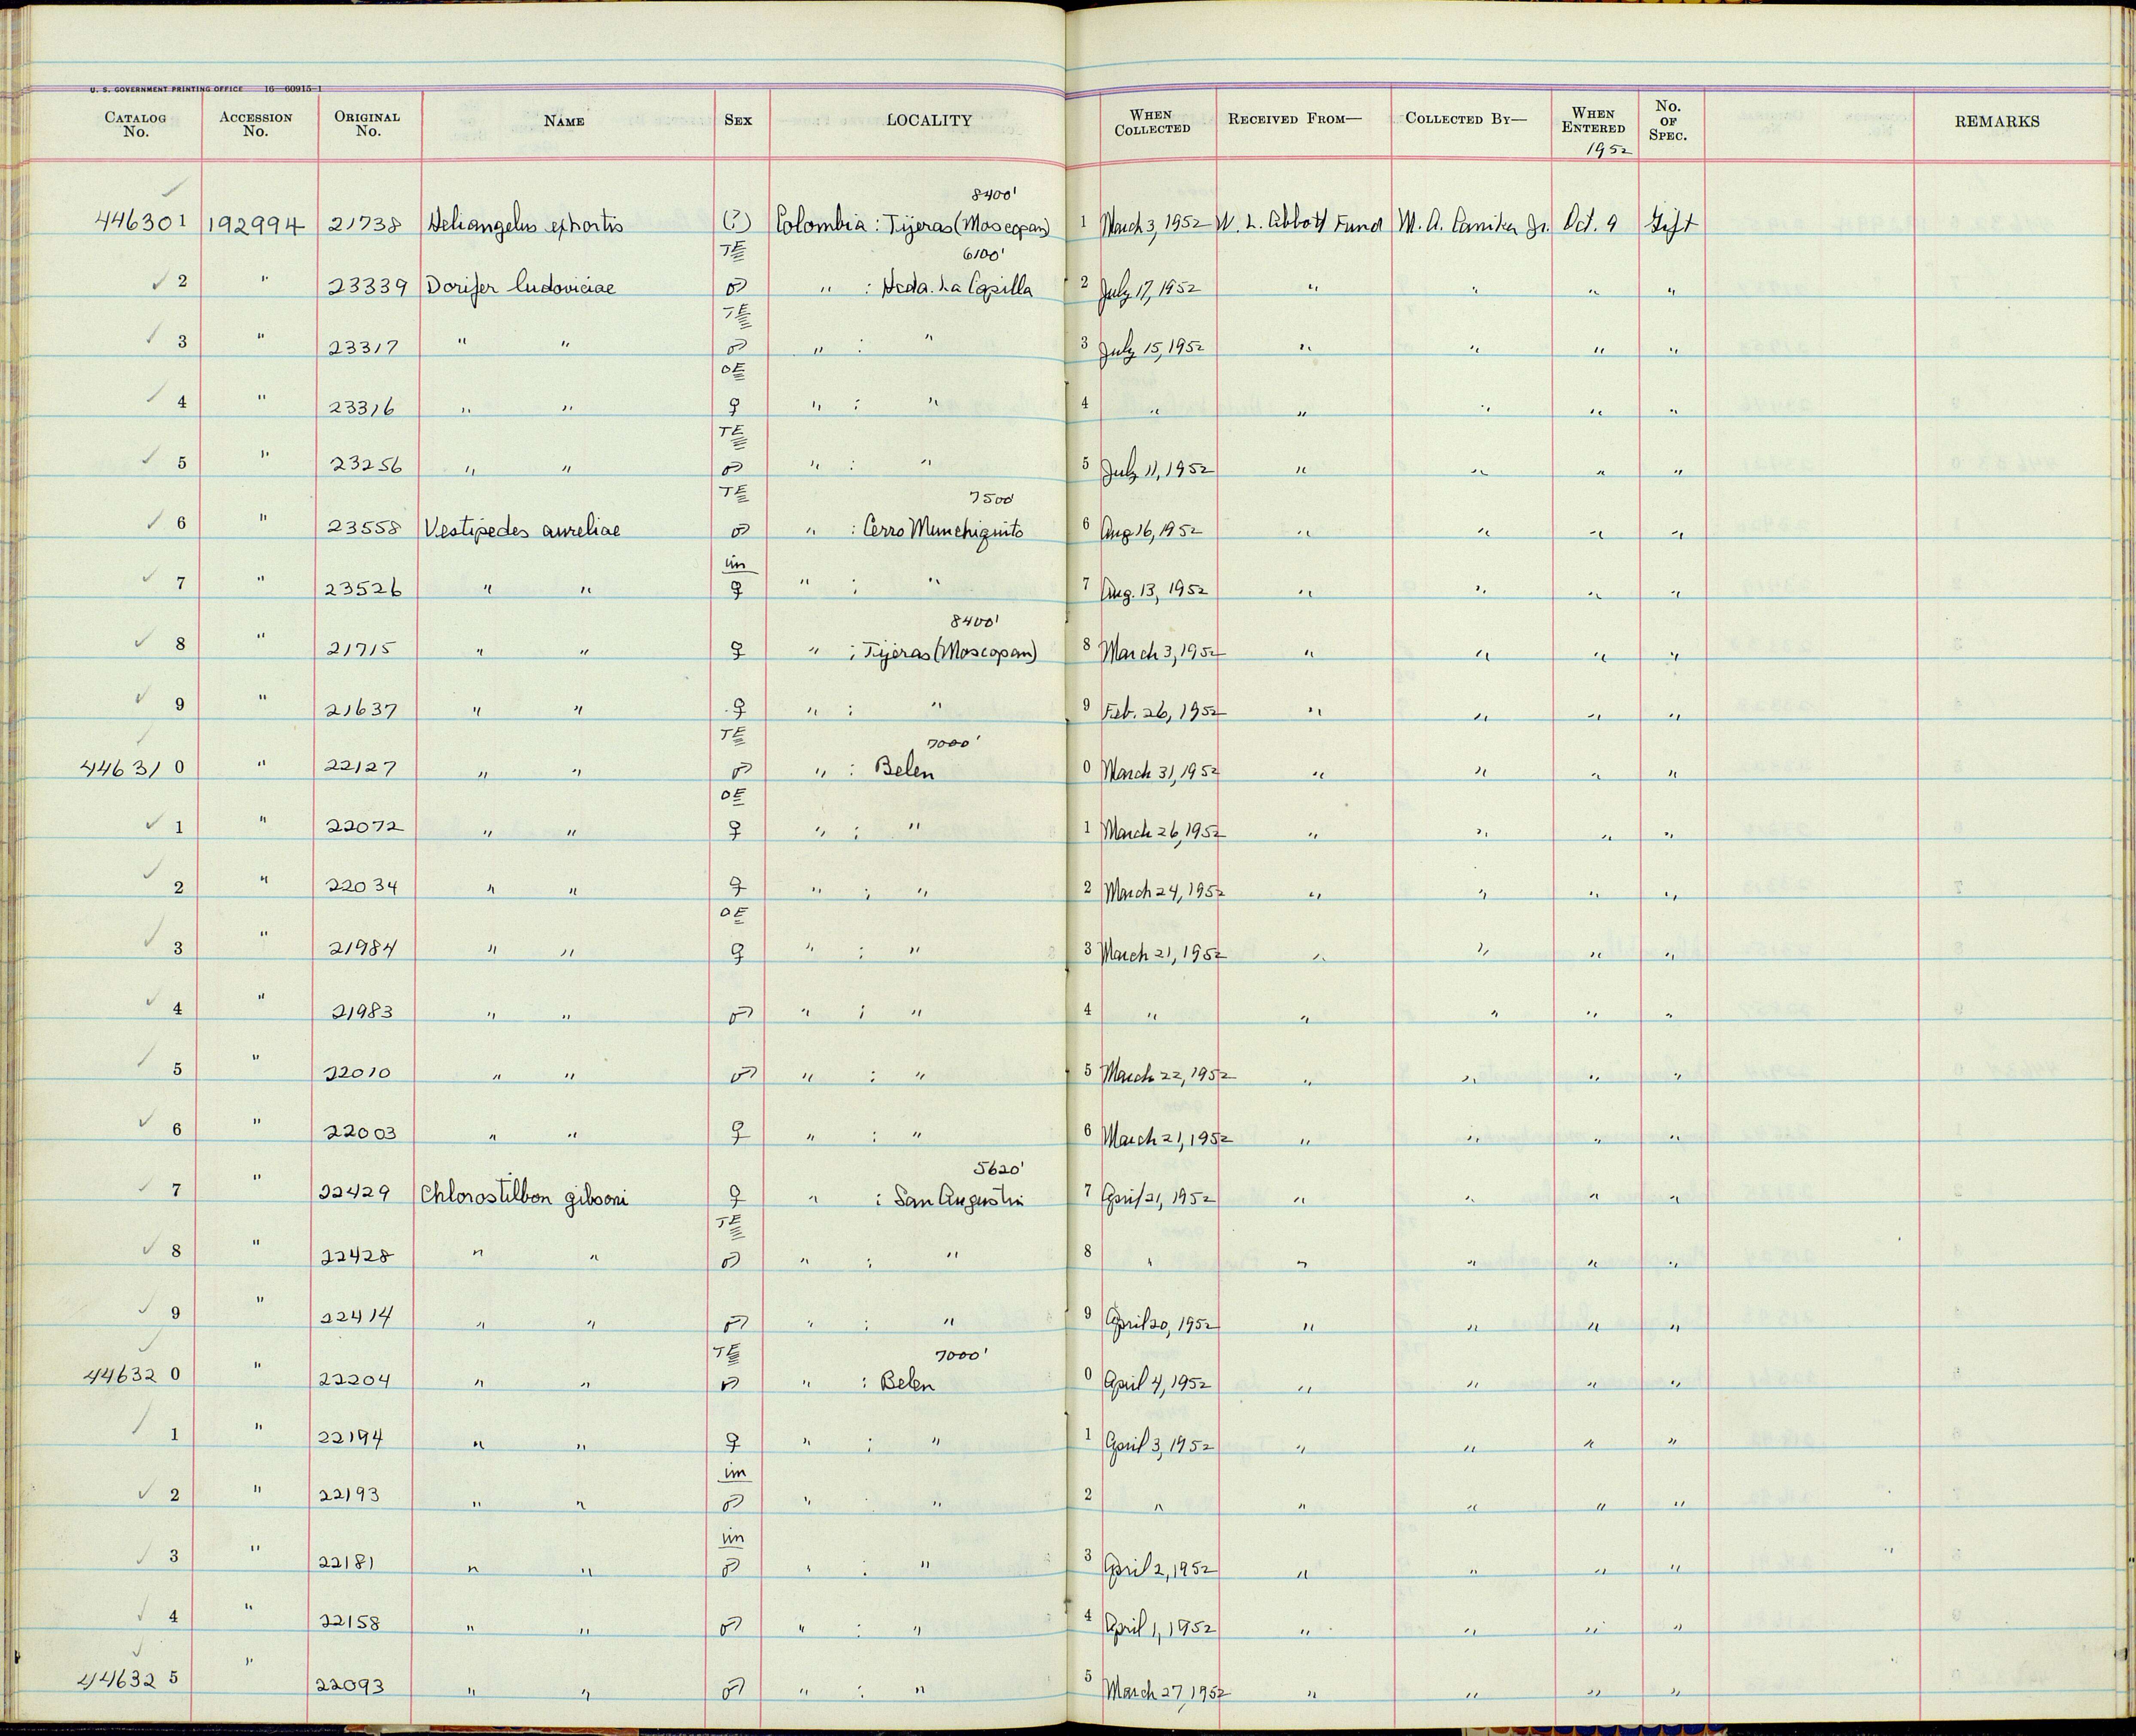 U. S. GOVERNMENT PRINTING OFFICE 16—60915-1
CATALOG No. ACCESSION No. ORIGINAL No. NAME SEX LOCALITY WHEN COLLECTED RECEIVED FROM— COLLECTED BY— WHEN ENTERED No. OF SPEC. REMARKS
1952
8400'
446301 192994 21738 Heliangelus exhortis (?) Colombia : Tijeras (Moscopan) 1 March 3, 1952 W. L. Abbott Fund M. A. Carriker Jr. Oct. 9 Gift
TE 6100'
2 " 23339 Dorifer ludoviciae ♂ " : Hcda. La Capilla 2 July 17, 1952 " " " "
TE
3 " 23317 " " ♂ " : " 3 July 15, 1952 " " " "
OE
4 " 23316 " " ♀ " : " 4 " " " " "
TE
5 " 23256 " " ♂ " : " 5 July 11, 1952 " " " "
TE 7500
6 " 23558 Vestipedes aureliae ♂ " : Cerro Munchiquito 6 Aug 16, 1952 " " " "
im
7 " 23526 " " ♀ " : " 7 Aug. 13, 1952 " " " "
8400'
8 " 21715 " " ♀ " : Tijeras (Moscopan) 8 March 3, 1952 " " " "
9 " 21637 " " ♀ " : " 9 Feb. 26, 1952 " " " "
TE 7000'
446310 " 22127 " " ♂ " : Belen 0 March 31, 1952 " " " "
OE
1 " 22072 " " ♀ " : " 1 March 26, 1952 " " " "
2 " 22034 " " ♀ " : " 2 March 24, 1952 " " " "
OE
3 " 21984 " " ♀ " : " 3 March 21, 1952 " " " "
4 " 21983 " " ♂ " : " 4 " " " " "
5 " 22010 " " ♂ " : " 5 March 22, 1952 " " " "
6 " 22003 " " ♀ " : " 6 March 21, 1952 " " " "
5620'
7 " 22429 Chlorostilbon gibsoni ♀ " : San Augustin 7 April 21, 1952 " " " "
TE
8 " 22428 " " ♂ " : " 8 " " " " "
9 " 22414 " " ♂ " : " 9 April 20, 1952 " " " "
TE 7000'
446320 " 22204 " " ♂ " : Belen 0 April 4, 1952 " " " "
1 " 22194 " " ♀ " : " 1 April 3, 1952 " " " "
im
2 " 22193 " " ♂ " : " 2 " " " " "
im
3 " 22181 " " ♂ " : " 3 April 2, 1952 " " " "
4 " 22158 " " ♂ " : " 4 April 1, 1952 " " " "
446325 " 22093 " " ♂ " : " 5 March 27, 1952 " " " "